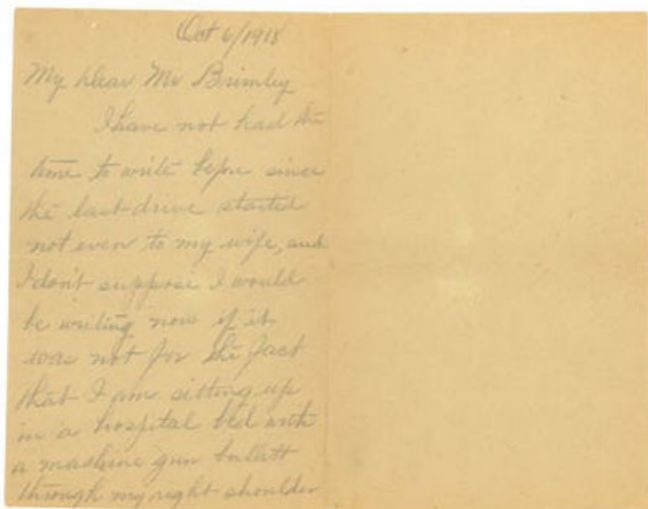 Oct 6/1918
My dear Mr Brimley
I have not had the
time to write before since
the last drive started
not even to my wife, and
I don't suppose I would
be writing now if it
was not for the fact
that I am sitting up
in a hospital bed with
a mashine gun bulett
through my right shoulder